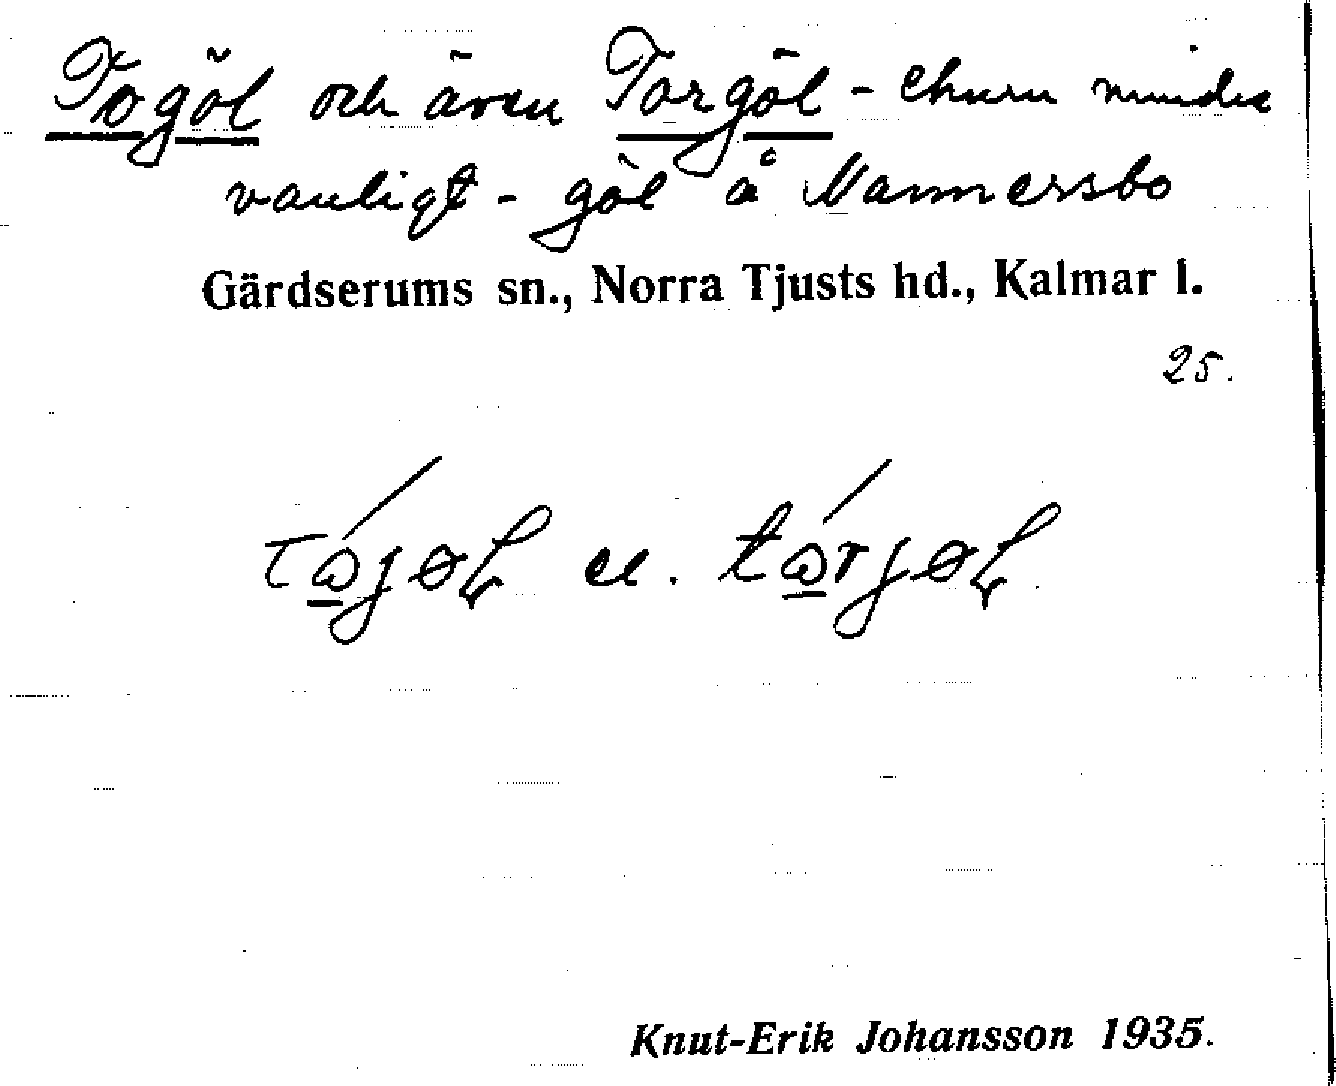 Togöl och även Torgöl - ehuru mindre
vanligt - göl å Mannersbo
Gärdserums sn., Norra Tjusts hd., Kalmar l.
25.
el.
Knut-Erik Johansson 1935.